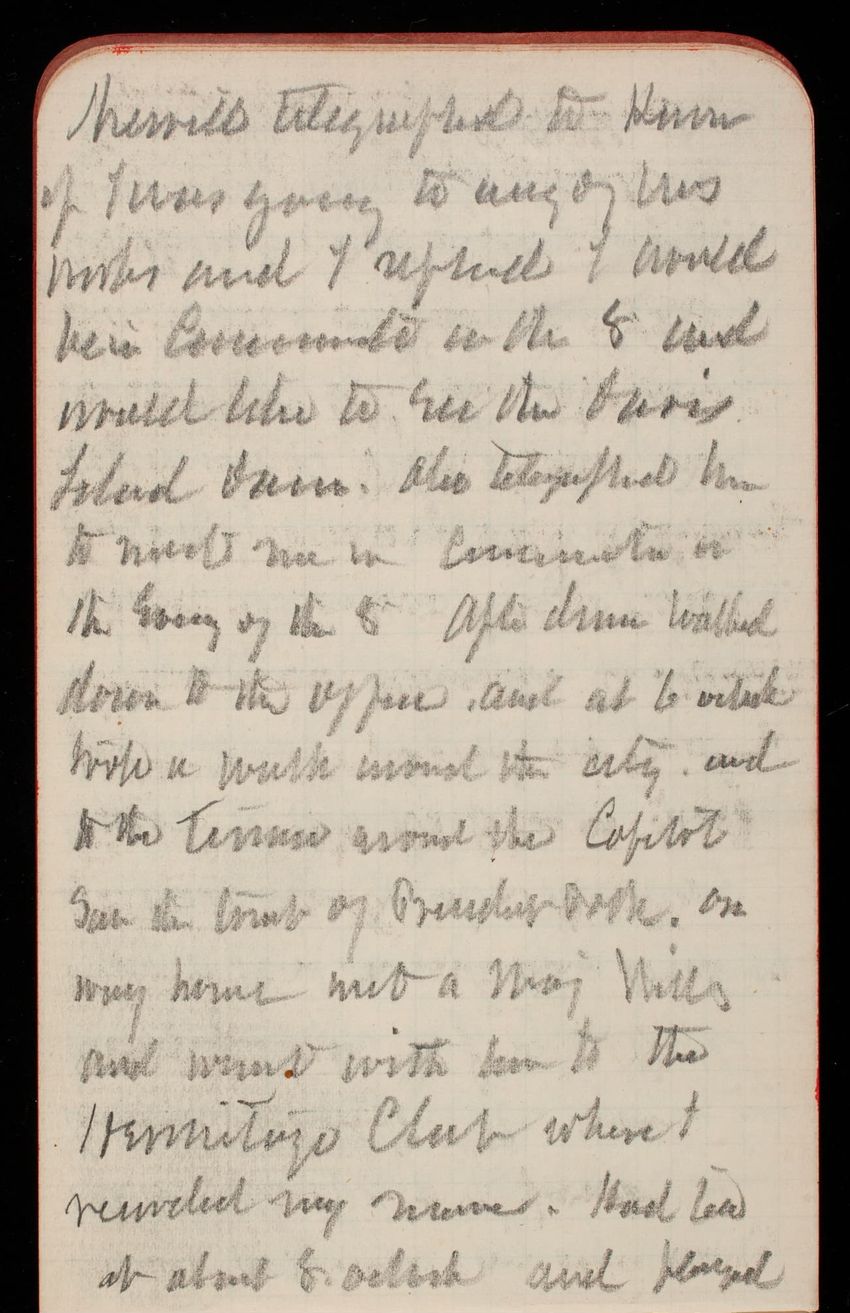 Merrill telegraphed to know
if I was going to any of his
works and I replied I would
be in Cincinnati on the 8 and
would like to see the Davis
Island Dam. Also telegraphed him
to meet me in Cincinnati on
the Evng of the 8 After dinner walked
down to the office. and at 6 oclock
took a walk around the city. and
to the Terrace around the Capitol
Saw the tomb of President Polk. On
way home met a Maj Wills
and went with him to the
Hermitage Club where I
recorded my name. Had tea
at about 8. oclock and played